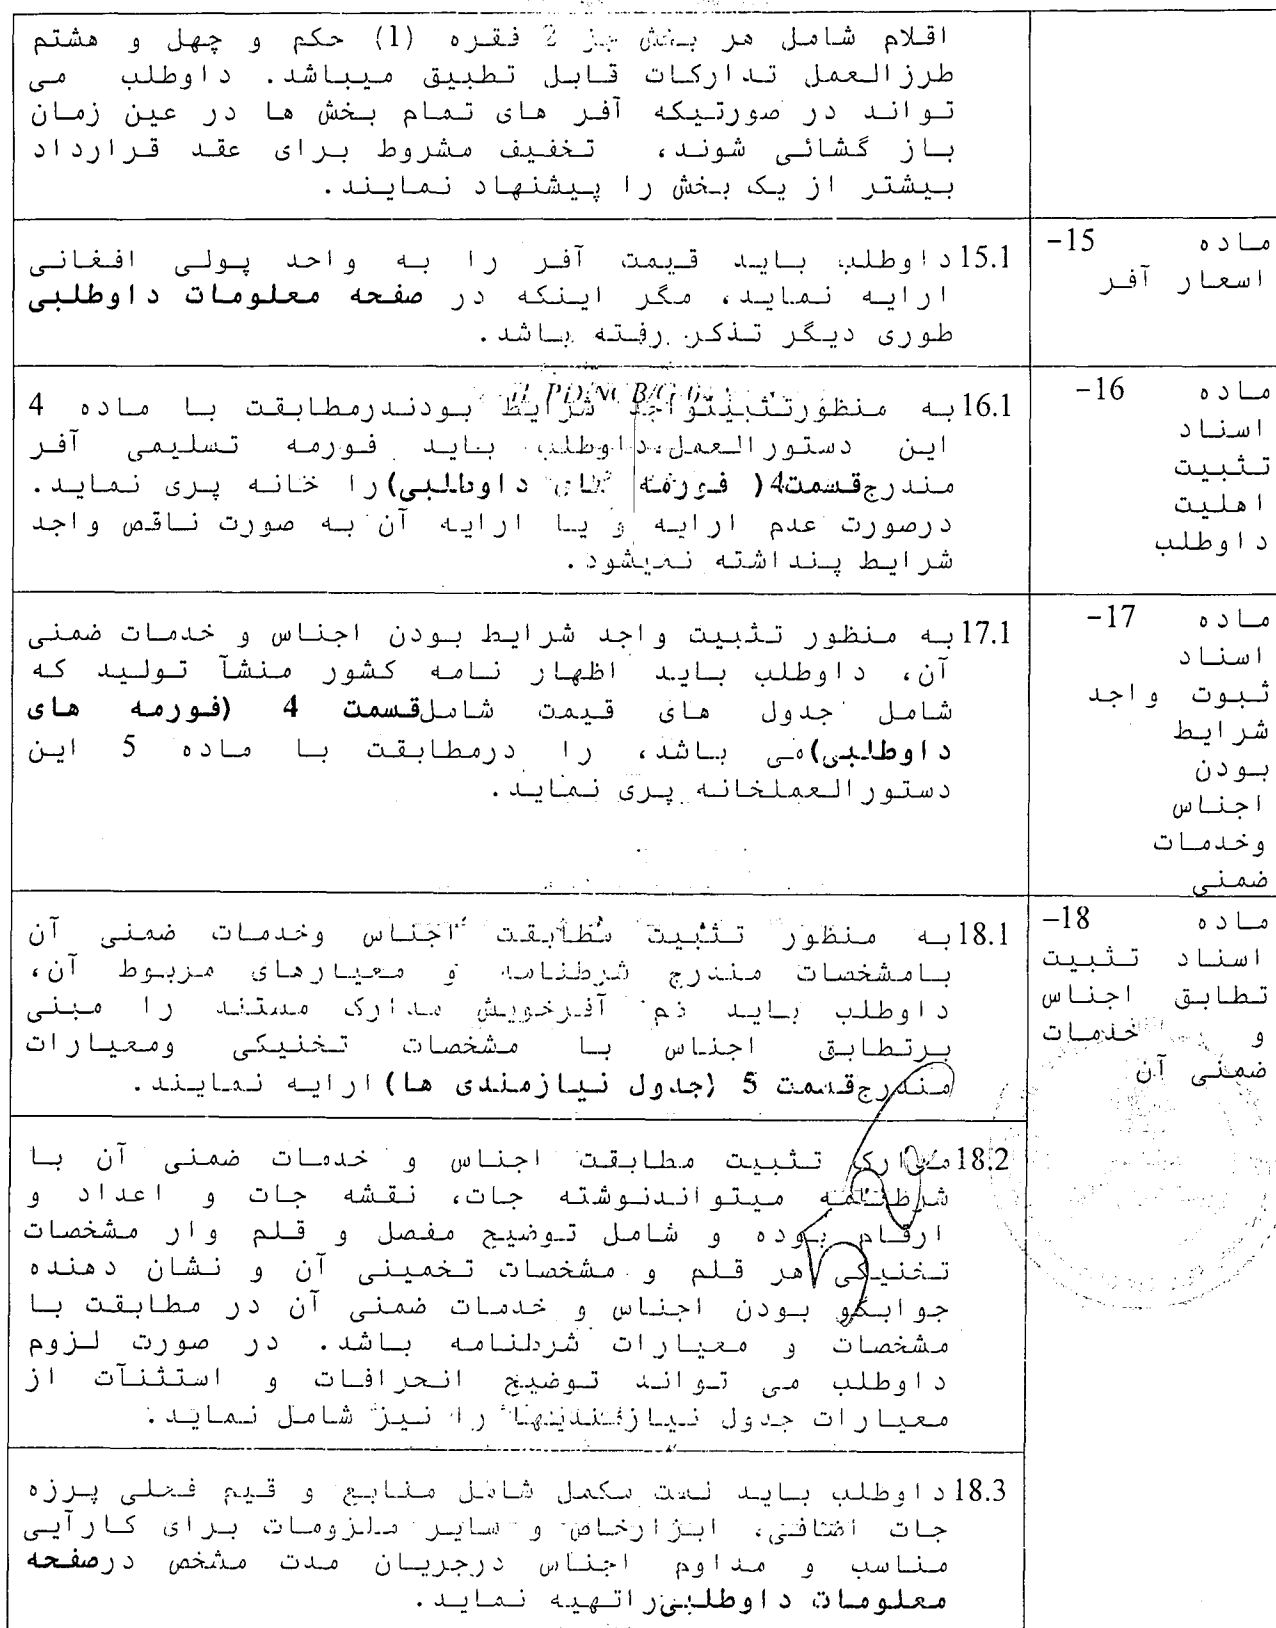 اقلام شامل هر بخش جز 2 فقره (1) حکم و چهل و هشتم
طرزالعمل تدارکات قابل تطبیق میباشد. داوطلب می
تواند در صورتیکه آفر های تمام بخش ها در عین زمان
باز گشائی شوند، تخفیف مشروط برای عقد قرارداد
بیشتر از یک بخش را پیشنهاد نمایند.
ماده 15-
اسعار آفر
15.1 داوطلب باید قیمت آفر را به واحد پولی افغانی
ارایه نماید، مگر اینکه در صفحه معلومات داوطلبی
طوری دیگر تذکر رفته باشد.
ماده 16-
اسناد
تثبیت
اهلیت
داوطلب
16.1 به منظورتثبیتواجد شرایط بودندرمطابقت با ماده 4
این دستورالعمل،داوطلب باید فورمه تسلیمی آفر
مندرجقسمت4( فورمه های داوطلبی)را خانه پری نماید.
درصورت عدم ارایه و یا ارایه آن به صورت ناقص واجد
شرایط پنداشته نمیشود.
ماده 17-
اسناد
ثبوت واجد
شرایط
بودن
اجناس
وخدمات
ضمنی
17.1 به منظور تثبیت واجد شرایط بودن اجناس و خدمات ضمنی
آن، داوطلب باید اظهار نامه کشور منشآ تولید که
شامل جدول های قیمت شاملقسمت 4 (فورمه های
داوطلبی)می باشد، را درمطابقت با ماده 5 این
دستورالعملخانه پری نماید.
ماده 18-
اسناد تثبیت
تطابق اجناس
و خدمات
ضمنی آن
18.1 به منظور تثبیت مطابقت اجناس وخدمات ضمنی آن
بامشخصات مندرج شرطنامه و معیارهای مربوط آن،
داوطلب باید ضم آفرخویش مدارک مستند را مبنی
برتطابق اجناس با مشخصات تخنیکی ومعیارات
مندرجقسمت 5 (جدول نیازمندی ها)ارایه نمایند.
18.2 مدارک تثبیت مطابقت اجناس و خدمات ضمنی آن با
شرطنامه میتواندنوشته جات، نقشه جات و اعداد و
ارقام بوده و شامل توضیح مفصل و قلم وار مشخصات
تخنیکی هر قلم و مشخصات تخمینی آن و نشان دهنده
جوابگو بودن اجناس و خدمات ضمنی آن در مطابقت با
مشخصات و معیارات شرطنامه باشد. در صورت لزوم
داوطلب می تواند توضیح انحرافات و استثنآت از
معیارات جدول نیازمندیها را نیز شامل نماید.
18.3 داوطلب باید لست مکمل شامل منابع و قیم فعلی پرزه
جات اضافی، ابزارخاص و سایر ملزومات برای کارآیی
مناسب و مداوم اجناس درجریان مدت مشخص درصفحه
معلومات داوطلبیراتهیه نماید.